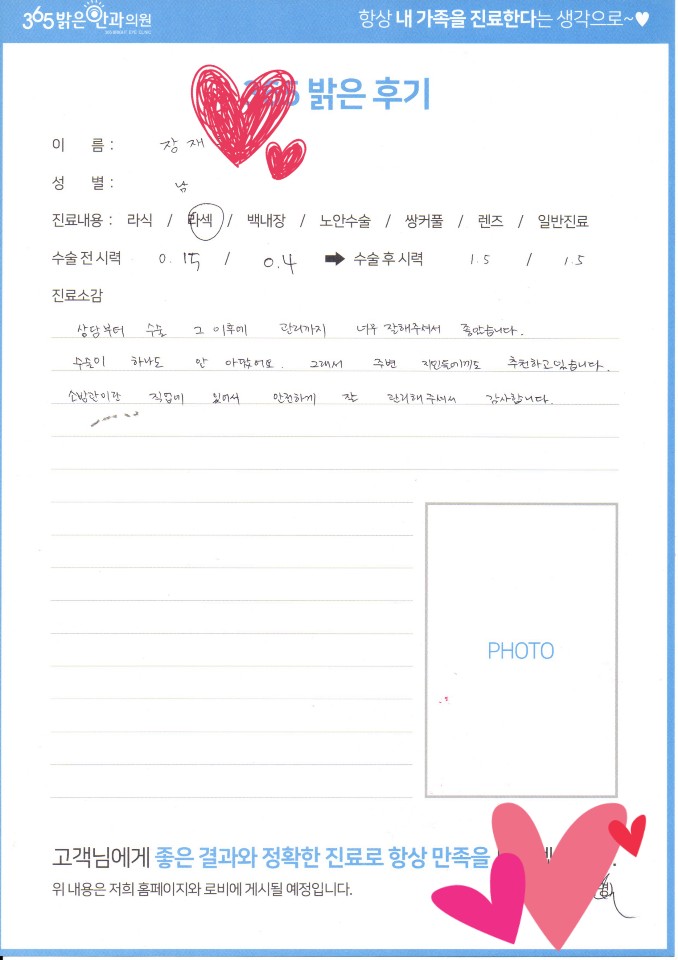 365밝은안과의원
365 BRIGHT EYE CLINIC
항상 내 가족을 진료한다는 생각으로~♥
365 밝은 후기
이 름 : 장재
성 별 : 남
진료내용 : 라식 / 라섹 / 백내장 / 노안수술 / 쌍커풀 / 렌즈 / 일반진료
수술 전 시력 0.15 / 0.4 ➡ 수술 후 시력 1.5 / 1.5
진료소감
상담부터 수술 그 이후에 관리까지 너무 잘해주셔서 좋았습니다.
수술이 하나도 안 아팠어요. 그래서 주변 지인들에게도 추천하고있습니다.
소방관이란 직업에 있어서 안전하게 잘 관리해주셔서 감사합니다.
PHOTO
고객님에게 좋은 결과와 정확한 진료로 항상 만족을
위 내용은 저희 홈페이지와 로비에 게시될 예정입니다.